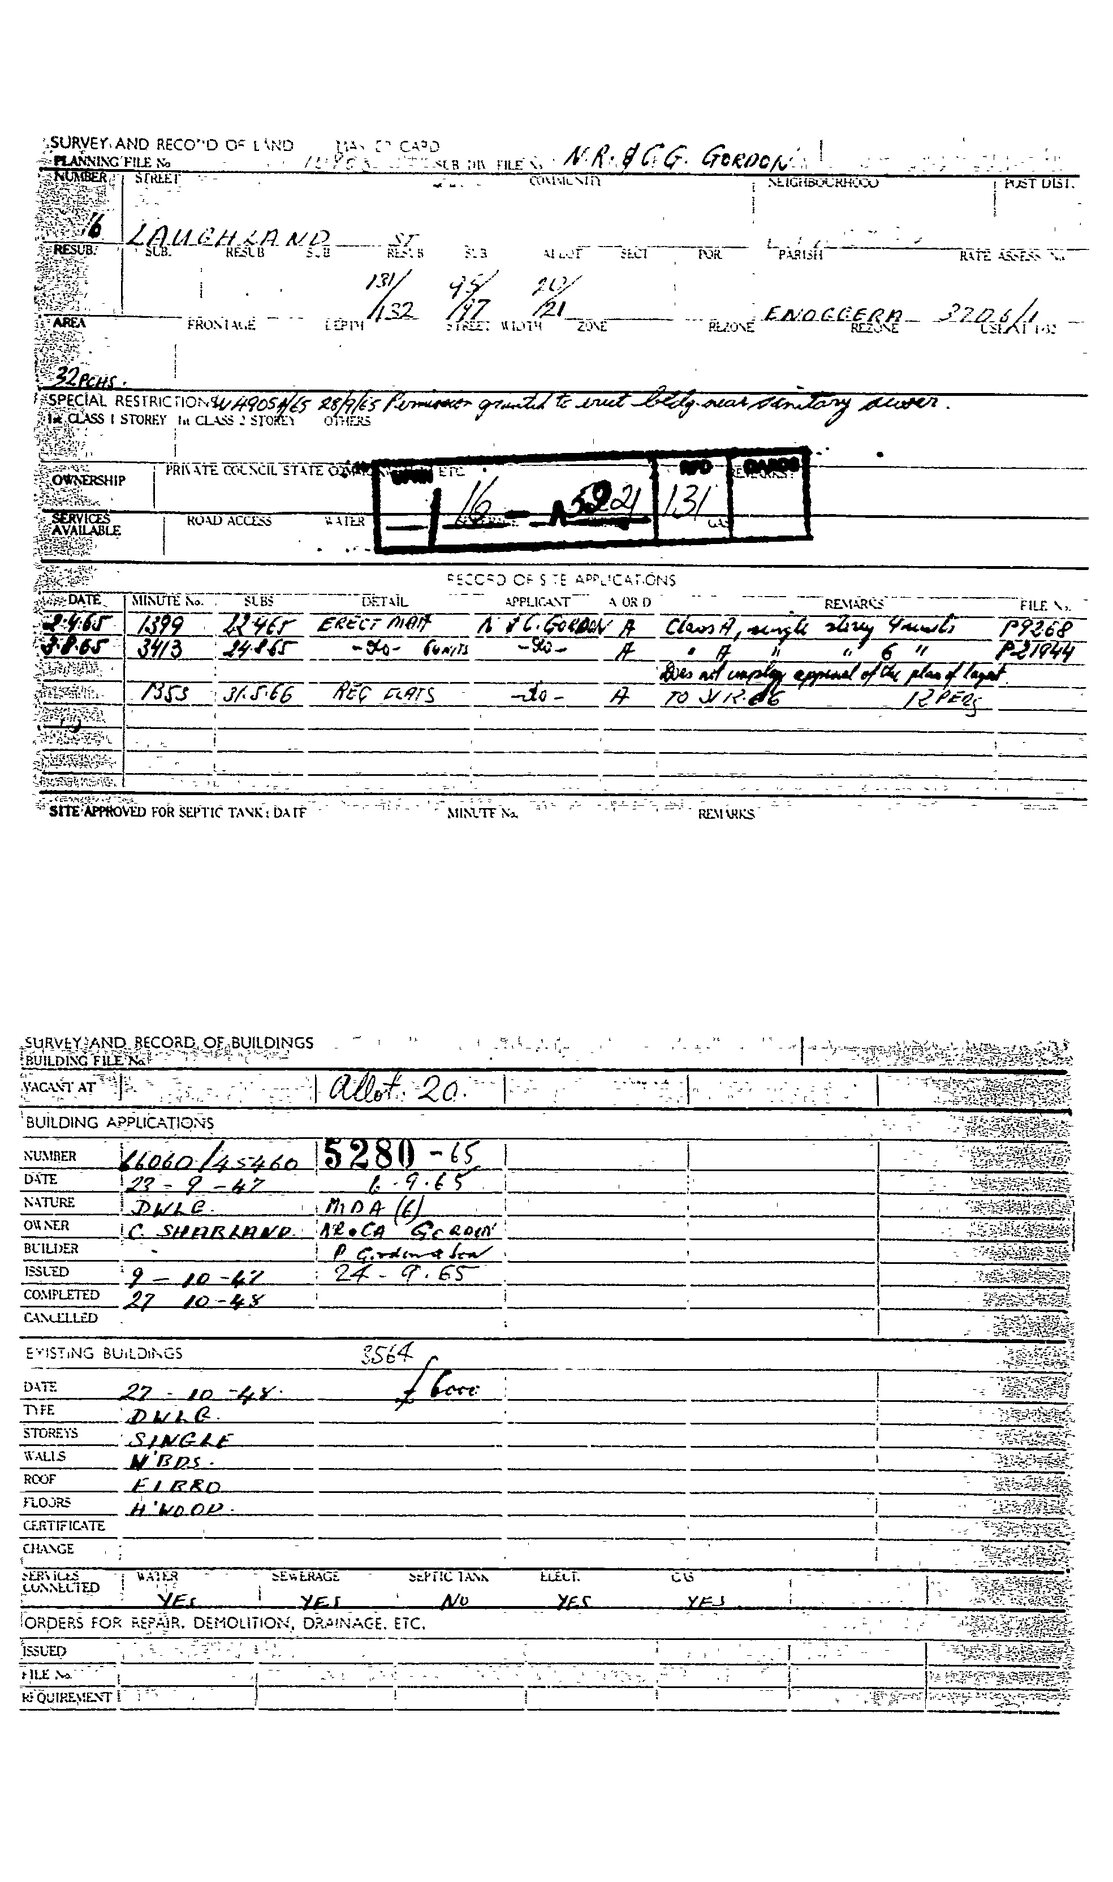 SURVEY AND RECORD OF LAND MASTER CARD
PLANNING FILE No SUB DIV FILE No N.R. & C.G. GORDON
NUMBER STREET COMMUNITY NEIGHBOURHOOD POST DIST.
16 LAUGHLAND ST
RESUB. SUB. RESUB SUB RESUB SUB ALLOT SECT POR PARISH RATE ASSESS No
131/132 95/97 20/21 ENOGGERA 3206/1
AREA FRONTAGE DEPTH STREET WIDTH ZONE REZONE REZONE
32 PCHS.
SPECIAL RESTRICTIONS 28/9/65 Permission granted to erect bldg. near sanitary sewer.
1st CLASS 1 STOREY 1st CLASS 2 STOREY OTHERS
OWNERSHIP PRIVATE COUNCIL STATE ETC. RPD CARDS REMARKS
16 - A5921 131
SERVICES AVAILABLE ROAD ACCESS WATER GAS
RECORD OF SITE APPLICATIONS
DATE MINUTE No. SUBS DETAIL APPLICANT A OR D REMARKS FILE No.
2.4.65 1399 22.4.65 ERECT N & C. GORDON A Class A, single storey 4 units P9268
3.8.65 3413 24.8.65 -do- 6 UNITS -do- A " A " " 6 " P21944
Does not employ approval of the plan of layout.
1353 31.5.66 REG FLATS -do- A TO 31.12.66 12 PERS
SITE APPROVED FOR SEPTIC TANK: DATE MINUTE No. REMARKS
SURVEY AND RECORD OF BUILDINGS
BUILDING FILE No
VACANT AT Allot. 20.
BUILDING APPLICATIONS
NUMBER 66060/45460 5280-65
DATE 23-9-47 6.9.65
NATURE DWLG. MDA (6)
OWNER C. SHARLAND. NR & CA GORDON
BUILDER P Gordon & Son
ISSUED 9-10-47 24-9.65
COMPLETED 27 10-48
CANCELLED
EXISTING BUILDINGS 3564
DATE 27-10-48. £6000
TYPE DWLG.
STOREYS SINGLE
WALLS W'BDS.
ROOF FIBRO
FLOORS H'WOOD.
CERTIFICATE
CHANGE
SERVICES CONNECTED WATER SEWERAGE SEPTIC TANK ELECT. GAS
YES YES NO YES YES
ORDERS FOR REPAIR, DEMOLITION, DRAINAGE, ETC.
ISSUED
FILE No.
REQUIREMENT